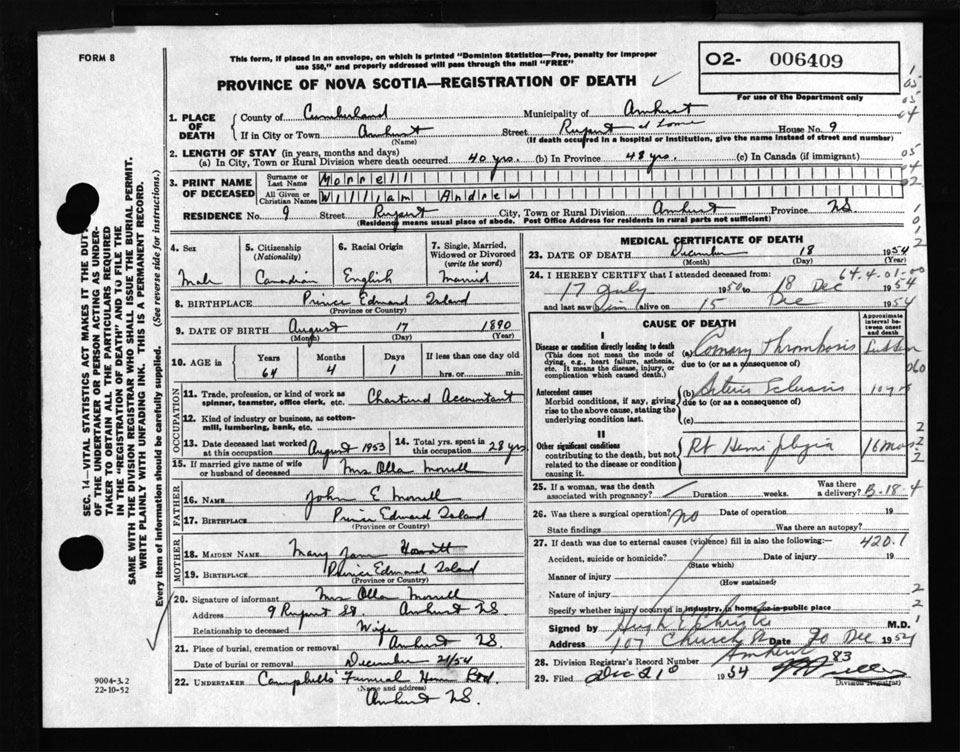 FORM 8
This form, if placed in an envelope, on which is printed "Dominion Statistics—Free, penalty for improper
use $50," and properly addressed will pass through the mail "FREE"
O2- 006409
PROVINCE OF NOVA SCOTIA—REGISTRATION OF DEATH
For use of the Department only
1. PLACE OF DEATH
County of Cumberland Municipality of Amherst
If in City or Town Amherst Street Rupert at home House No. 9
(Name) (If death occurred in a hospital or institution, give the name instead of street and number)
2. LENGTH OF STAY (in years, months and days)
(a) In City, Town or Rural Division where death occurred 40 yrs. (b) In Province 48 yrs. (c) In Canada (if immigrant)
3. PRINT NAME OF DECEASED
Surname or Last Name Morrell
All Given or Christian Names William Andrew
RESIDENCE No. 9 Street Rupert City, Town or Rural Division Amherst Province N.S.
(Residency means usual place of abode. Post Office Address for residents in rural parts not sufficient)
4. Sex
Male
5. Citizenship
(Nationality)
Canadian
6. Racial Origin
English
7. Single, Married, Widowed or Divorced
(write the word)
Married
8. BIRTHPLACE Prince Edward Island
(Province or Country)
9. DATE OF BIRTH August 17 1890
(Month) (Day) (Year)
10. AGE in Years Months Days If less than one day old
64 4 1 hrs. or min.
OCCUPATION
11. Trade, profession, or kind of work as spinner, teamster, office clerk, etc. Chartered Accountant
12. Kind of industry or business, as cotton-mill, lumbering, bank, etc.
13. Date deceased last worked at this occupation August 1953
14. Total yrs. spent in this occupation 28 yrs
15. If married give name of wife or husband of deceased Mrs Olla Morrell
FATHER
16. Name John E Morrell
17. Birthplace Prince Edward Island
(Province or Country)
MOTHER
18. MAIDEN NAME Mary Jane Howatt
19. BIRTHPLACE Prince Edward Island
(Province or Country)
20. Signature of informant Mrs Olla Morrell
Address 9 Rupert St. Amherst N.S.
Relationship to deceased Wife
21. Place of burial, cremation or removal Amherst N.S.
Date of burial or removal December 21/54
22. UNDERTAKER Campbells' Funeral Home Ltd.
(Name and address)
Amherst N.S.
MEDICAL CERTIFICATE OF DEATH
23. DATE OF DEATH December 18 1954
(Month) (Day) (Year)
64.4.01-00
24. I HEREBY CERTIFY that I attended deceased from:
17 July 1950 to 18 Dec 1954
and last saw him alive on 15 Dec 1954
CAUSE OF DEATH
Approximate interval between onset and death
I
Disease or condition directly leading to death
(This does not mean the mode of dying, e.g., heart failure, asthenia, etc. It means the disease, injury, or complication which caused death.)
(a) Coronary Thrombosis Sudden
due to (or as a consequence of)
Antecedent causes
Morbid conditions, if any, giving rise to the above cause, stating the underlying condition last.
(b) Arterio Sclerosis 10 yrs
due to (or as a consequence of)
(c)
II
Other significant conditions
contributing to the death, but not related to the disease or condition causing it.
Rt Hemiplegia 16 mos
25. If a woman, was the death associated with pregnancy? Duration weeks. Was there a delivery? B-18-4
26. Was there a surgical operation? No Date of operation 19
State findings Was there an autopsy?
27. If death was due to external causes (violence) fill in also the following:— 420.1
Accident, suicide or homicide? Date of injury 19
(State which)
Manner of injury
(How sustained)
Nature of injury
Specify whether injury occurred in industry, in home, or in public place
Signed by Hugh E Christie M.D.
107 Church St Date 20 Dec 1954
Amherst
28. Division Registrar's Record Number 83
29. Filed Dec 21 1954
Division Registrar
SEC. 14—VITAL STATISTICS ACT MAKES IT THE DUTY
OF THE UNDERTAKER OR PERSON ACTING AS UNDER-
TAKER TO OBTAIN ALL THE PARTICULARS REQUIRED
IN THE "REGISTRATION OF DEATH" AND TO FILE THE
SAME WITH THE DIVISION REGISTRAR WHO SHALL ISSUE THE BURIAL PERMIT.
WRITE PLAINLY WITH UNFADING INK. THIS IS A PERMANENT RECORD.
Every item of information should be carefully supplied. (See reverse side for instructions.)
9004-3.2
22-10-52